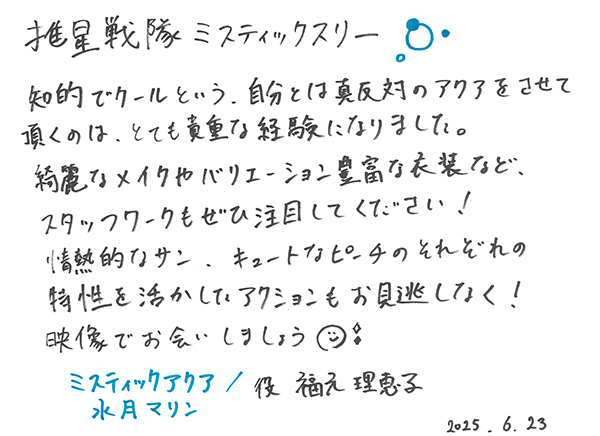 推星戦隊 ミスティックスリー
知的でクールという、自分とは真反対のアクアをさせて
頂くのは、とても貴重な経験になりました。
綺麗なメイクやバリエーション豊富な衣装など、
スタッフワークもぜひ注目してください!
情熱的なサン、キュートなピーチのそれぞれの
特性を活かしたアクションもお見逃しなく!
映像でお会いしましょう
ミスティックアクア/役 福元 理恵子
水月マリン
2025.6.23